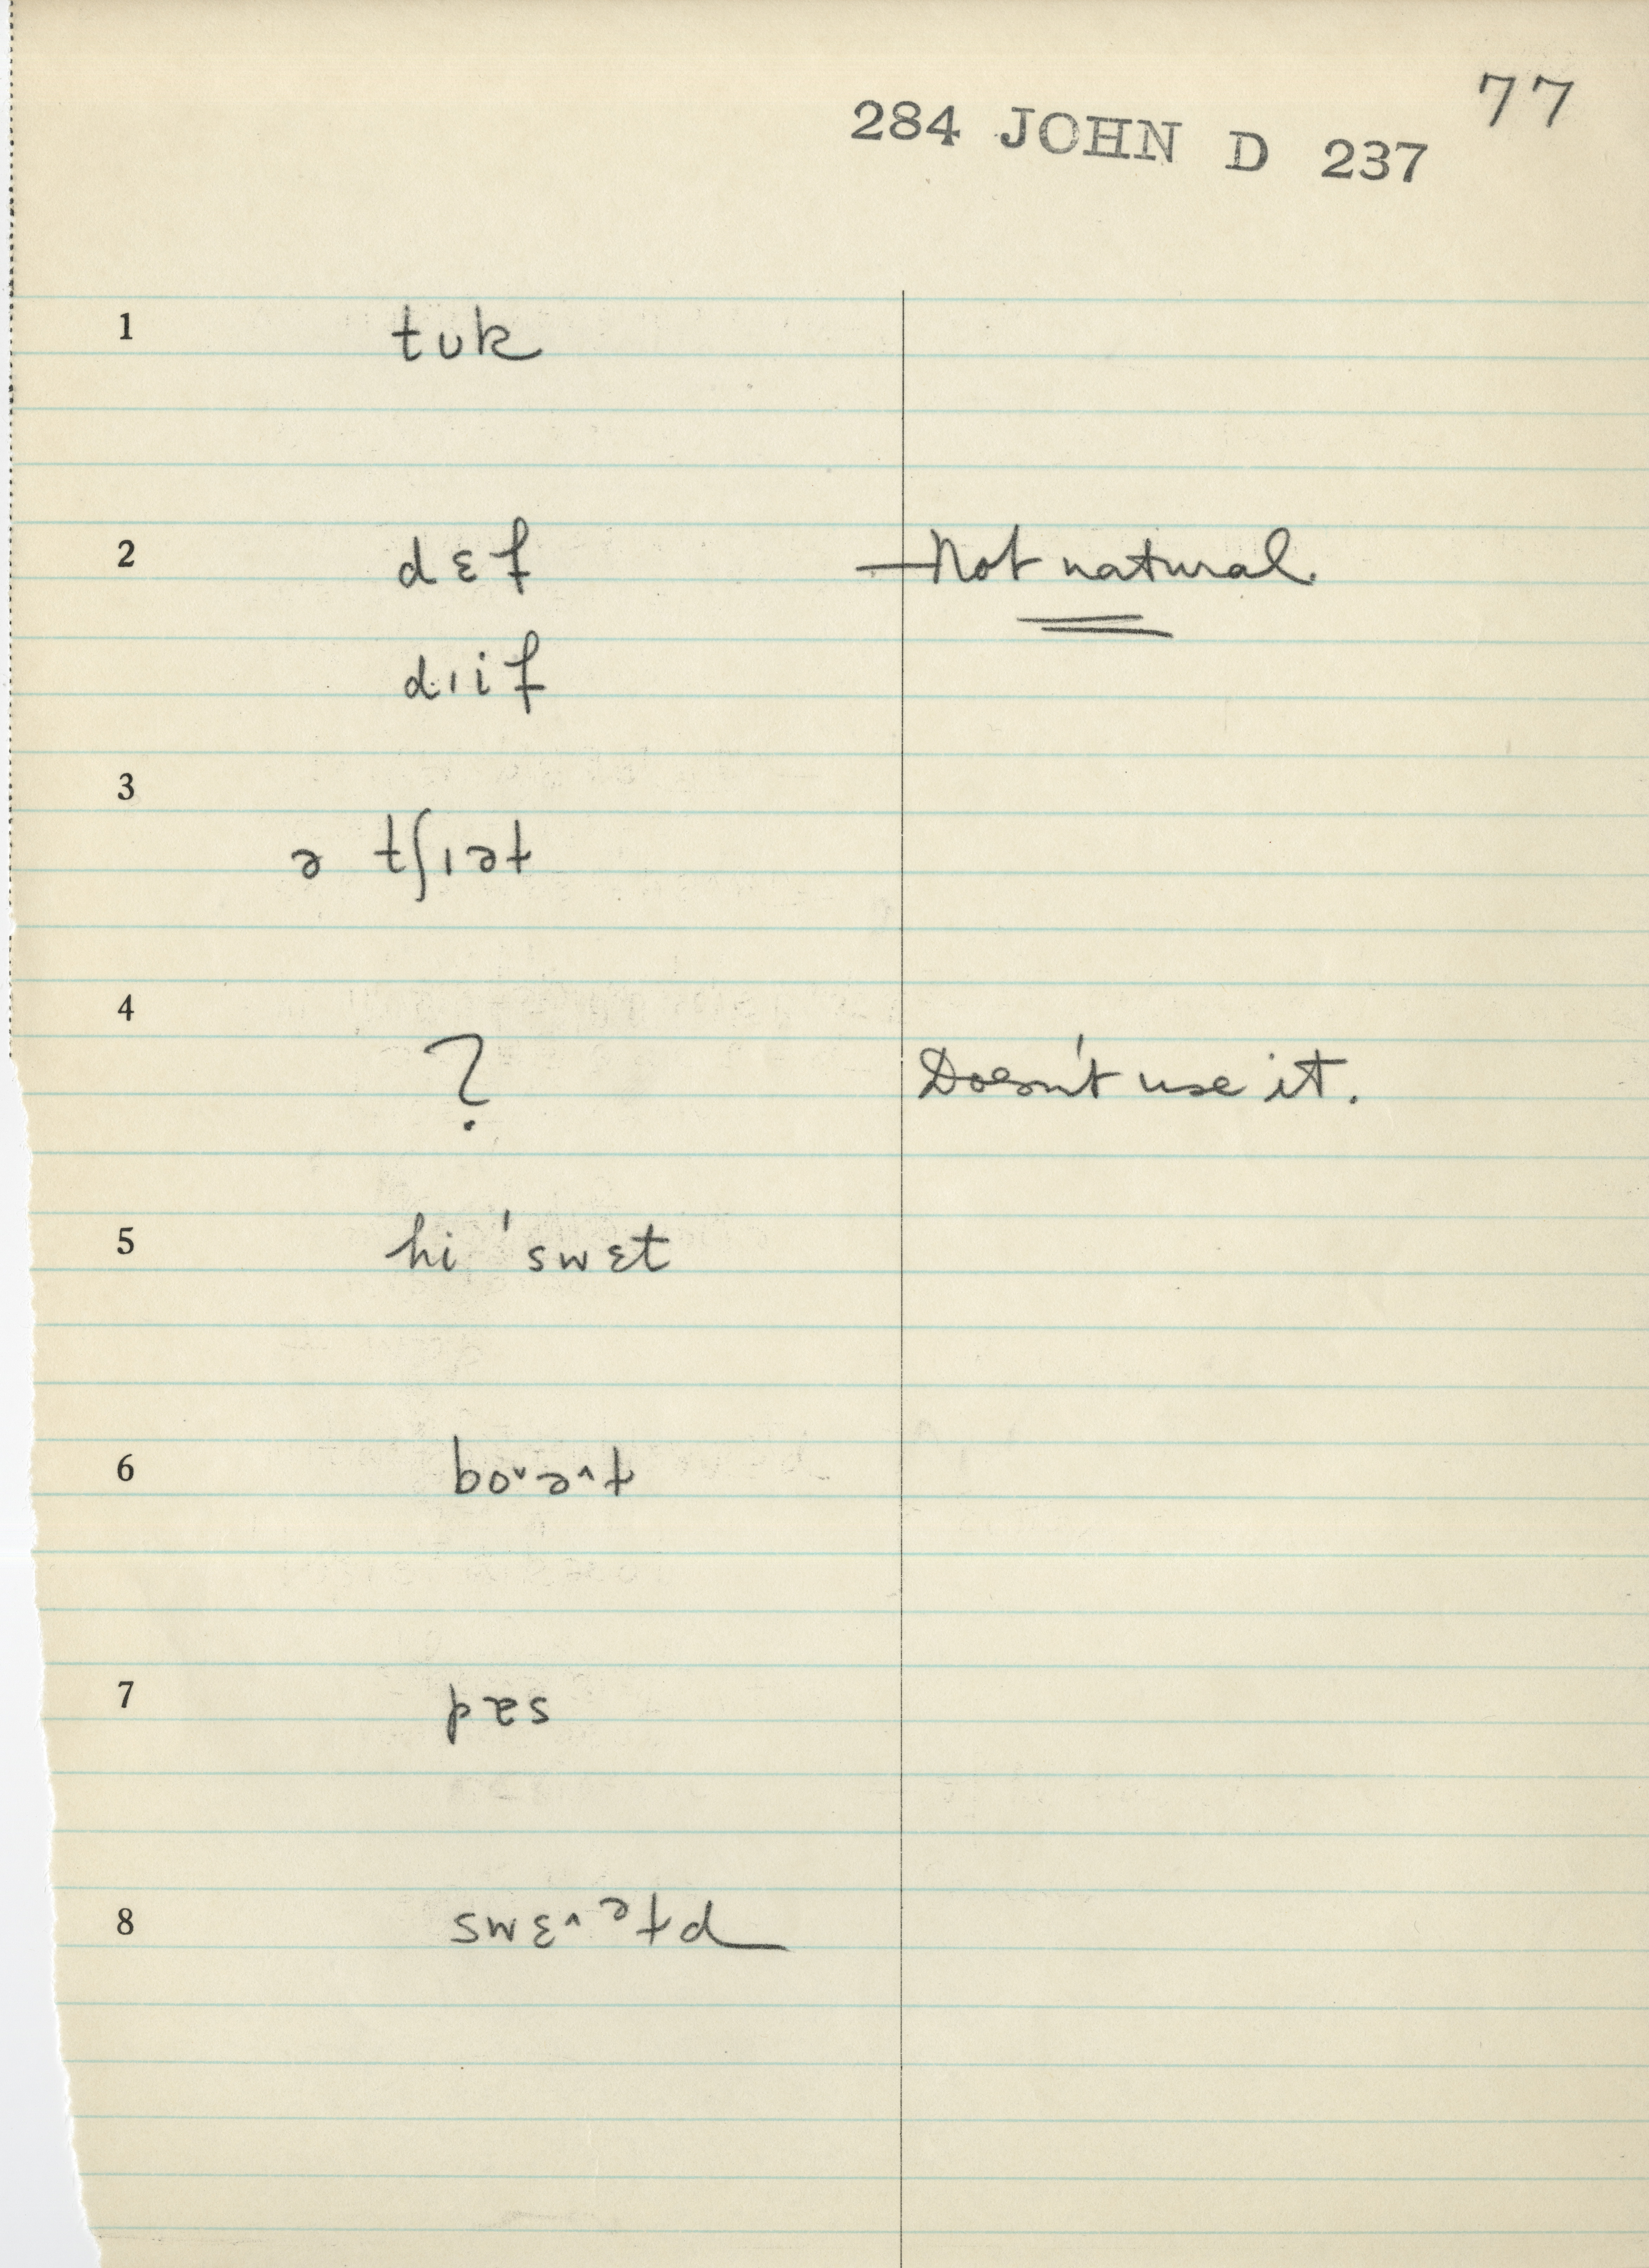 77
284 JOHN D 237
1 tʊk
2 dɛf —Not natural.
dɪif
3 ə tʃɪət
4 ? Doesn't use it.
5 hi 'swɛt
6 bo˅ə˄t
7 pɐs
8 swɛ˄ᵊtd